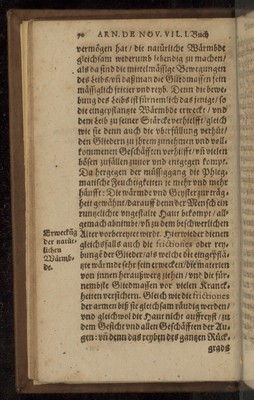 70 ARN. DE NOV. VIL. I. Buch
vermögen hat / die natürliche Wärmbde
gleichsam widerumb lebendig zu machen /
als da sind die mittelmässige Bewegungen
des Leibs / vñ daß man die Gliedmassen fein
mässiglich frictier vnd reyb. Denn die bewe-
bung des Leibs ist fürnemlich das jenige / so
die eingepflantzte Wärmbde erweckt / vnd
dem Leib zu seiner Stärcke verhielfft / gleich
wie sie denn auch die vberfüllung verhüt /
den Gliedern zu jhrem zunehmen vnd voll-
kommenen Geschäfften verhilfft / vñ vielen
bösen zufällen zuuor vnd entgegen kompt.
Da hergegen der müssiggang die Phleg-
matische Feuchtigkeiten je mehr vnd mehr
häufft: Die wärmde vnd Geyster zur träg-
heit gewähnt / darauß denn der Mensch ein
runtzelichte vngestalte Haut bekompt / all-
gemach abnimbt / vñ zu dem beschwerlichen
Alter vorbereytet wirdt. Hierwider dienen
gleichsfalls auch die frictiones oder rey-
bung der Glieder / als welche die eingepflä-
tzte wärmde sehr fein erwecken / die materien
von jnnen herauß werz ziehen / vnd die für-
nembste Gliedmassen vor vielen Kranck-
heiten versichern. Gleich wie die frictiones
der armen diß jst gleichsam räudig werden /
vnd gleichwol die Haut nicht auffreyst / zu
dem Gesicht vnd allen Geschäfften der Au-
gen: vñ denn das reyben des gantzen Rück-
grads
Erweckũg
der natür-
lichen
Wärmb-
de.